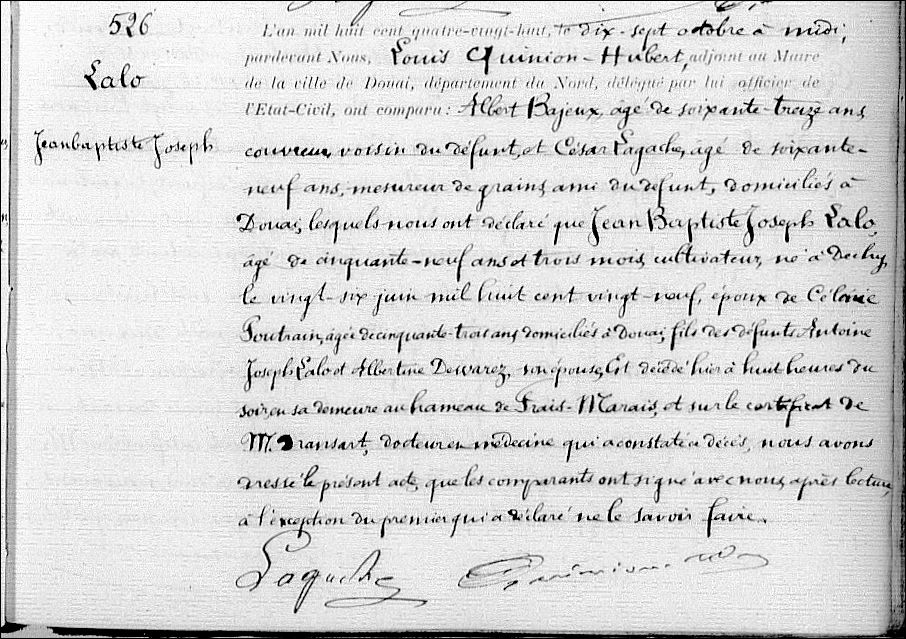 526
Lalo
Jeanbaptiste Joseph
L'an mil huit cent quatre-vingt-huit, le dix-sept octobre à midi,
pardevant Nous, Louis Quinion-Hubert, adjoint au Maire
de la ville de Douai, département du Nord, délégué par lui officier de
l'Etat-Civil, ont comparu: Albert Bajeux, âgé de soixante-treize ans,
couvreur, voisin du défunt, et César Lagache, âgé de soixante-
neuf ans, mesureur de grains, ami du défunt, domiciliés à
Douai, lesquels nous ont déclaré que Jean Baptiste Joseph Lalo,
âgé de cinquante-neuf ans et trois mois, cultivateur, né à Dechy,
le vingt-six juin mil huit cent vingt-neuf, époux de
Poutrain, âgée de cinquante-trois ans domiciliés à Douai, fils des défunts Antoine
Joseph Lalo et Albertine Dewarez, son épouse, Est décédé hier à huit heures du
soir, en sa demeure au hameau de Frais-Marais, et sur le certificat de
M. Dransart, docteur en médecine qui a constaté ce décès, nous avons
dressé le présent acte, que les comparants ont signé avec nous, après lecture,
à l'exception du premier qui a déclaré ne le savoir faire.
Lagache